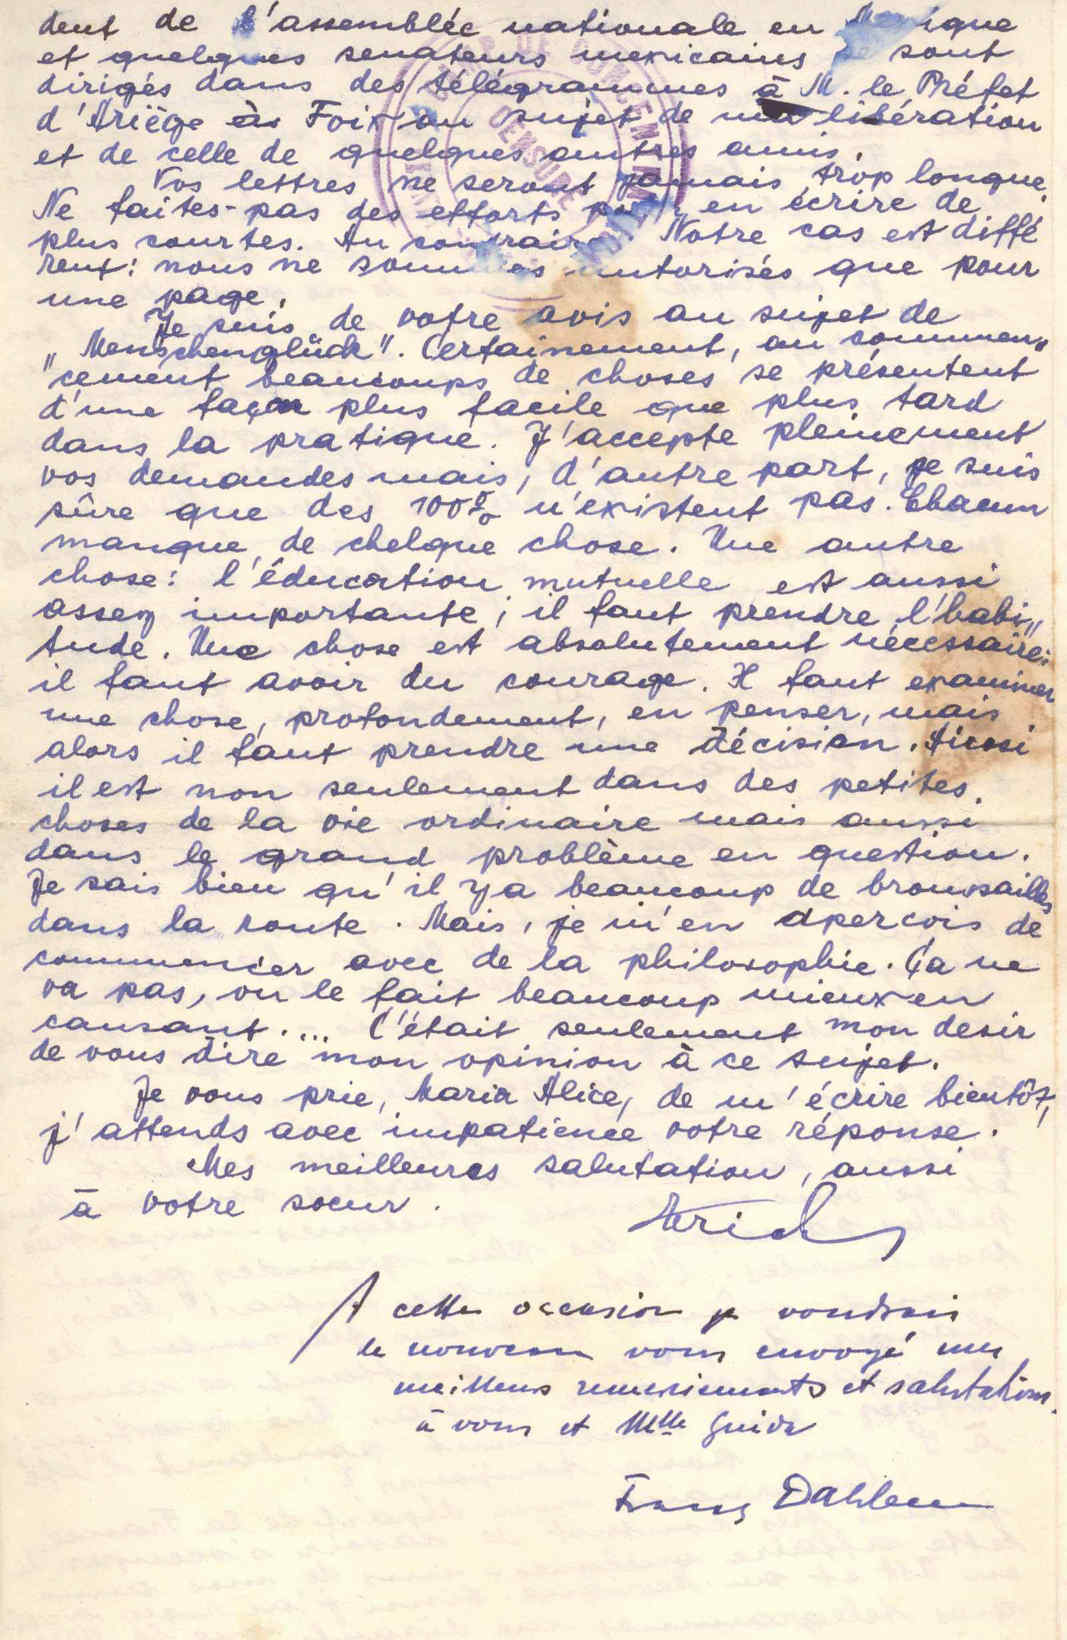 dent de l'assemblée nationale en
et quelques senateurs mexicains se sont
dirigés dans des télégrammes à M. le Préfet
d'Ariège às Foix au sujet de ma libération
et de celle de quelques autres amis.
Vos lettres ne seront jamais trop longue.
Ne faites-pas des efforts pour en écrire de
plus courtes. Au contraire. Notre cas est diffé
rent: nous ne sommes autorisés que pour
une page.
Je suis de votre avis au sujet de
„Menschenglück". Certainement, au commen„
"cement beaucoups de choses se présentent
d'une façon plus facile que plus tard
dans la pratique. J'accepte pleinement
vos demandes mais, d'autre part, je suis
sûre que des 100% n'existent pas. Chacun
manque de chelque chose. Une autre
chose: l'éducation mutuelle est aussi
assez importante; il faut prendre l'habi„
tude. Une chose est absolutement nécessaire:
il faut avoir du courage. Il faut examiner
une chose, profondement, en penser, mais
alors il faut prendre une décision. Aicosi
il est non seulement dans des petites
choses de la vie ordinaire mais aussi
dans le grand problème en question.
Je sais bien qu'il y a beaucoup de broussailles
dans la route. Mais, je m'en apercois de
commencer avec de la philosophie. Ça ne
va pas, on le fait beaucoup mieux en
causant.... C'était seulement mon desir
de vous dire mon opinion à ce sujet.
Je vous prie, Maria Alice, de m'écrire bientôt,
j'attends avec impatience votre réponse.
Mes meilleures salutation, aussi
à votre soeur.
A cette occasion je voudrais
de nouveau vous envoyé mes
meilleurs remerciements et salutations
à vous et Mlle Guida
Franz Dahlem
CENSURE